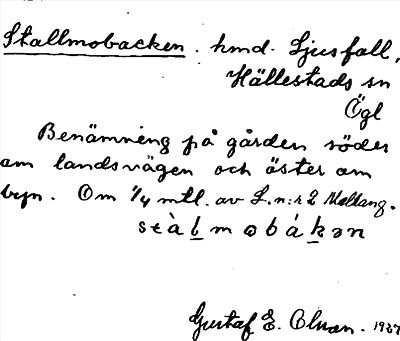 Stallmobacken. hmd. Ljusfall,
Hällestads sn
Ögl
Benämning på gården söder
om landsvägen och öster om
byn. Om 1/4 mtl. av L.n:r 2 Mellang.
stàlmobákən
Gustaf E. Olsson. 1927